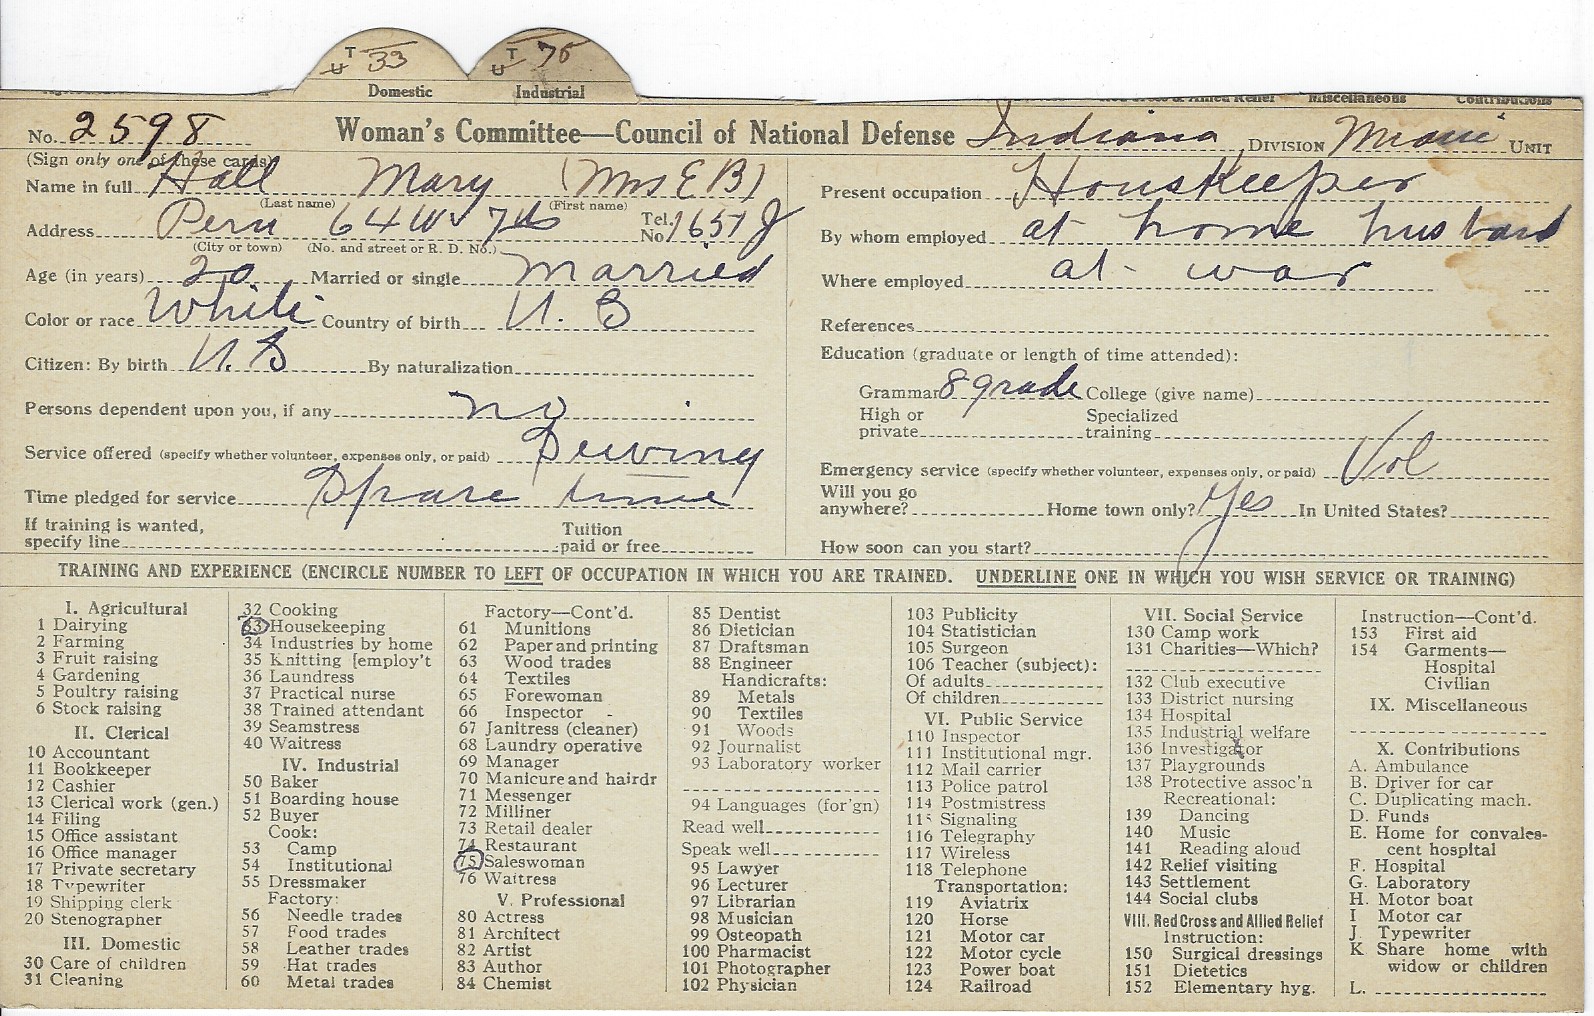 T 33 T 75
U U
Domestic Industrial
Miscellaneous Contributions
No. 2598 Woman's Committee—Council of National Defense Indiana DIVISION Miami UNIT
(Sign only one of these cards)
Name in full Hall Mary (Mrs E B)
(Last name) (First name)
Address Peru 64 W 7th Tel. No. 1657 J
(City or town) (No. and street or R. D. No.)
Age (in years) 20 Married or single married
Color or race White Country of birth U. S
Citizen: By birth U. S By naturalization
Persons dependent upon you, if any no
Service offered (specify whether volunteer, expenses only, or paid) Sewing
Time pledged for service Spare time
If training is wanted,
specify line Tuition
paid or free
Present occupation Houskeeper
By whom employed at home husband
Where employed at war
References
Education (graduate or length of time attended):
Grammar 8 grade College (give name)
High or
private Specialized
training
Emergency service (specify whether volunteer, expenses only, or paid) Vol
Will you go
anywhere? Home town only? Yes In United States?
How soon can you start?
TRAINING AND EXPERIENCE (ENCIRCLE NUMBER TO LEFT OF OCCUPATION IN WHICH YOU ARE TRAINED. UNDERLINE ONE IN WHICH YOU WISH SERVICE OR TRAINING)
I. Agricultural
1 Dairying
2 Farming
3 Fruit raising
4 Gardening
5 Poultry raising
6 Stock raising
II. Clerical
10 Accountant
11 Bookkeeper
12 Cashier
13 Clerical work (gen.)
14 Filing
15 Office assistant
16 Office manager
17 Private secretary
18 Typewriter
19 Shipping clerk
20 Stenographer
III. Domestic
30 Care of children
31 Cleaning
32 Cooking
33 Housekeeping
34 Industries by home
35 Knitting [employ't
36 Laundress
37 Practical nurse
38 Trained attendant
39 Seamstress
40 Waitress
IV. Industrial
50 Baker
51 Boarding house
52 Buyer
Cook:
53 Camp
54 Institutional
55 Dressmaker
Factory:
56 Needle trades
57 Food trades
58 Leather trades
59 Hat trades
60 Metal trades
Factory—Cont'd.
61 Munitions
62 Paper and printing
63 Wood trades
64 Textiles
65 Forewoman
66 Inspector
67 Janitress (cleaner)
68 Laundry operative
69 Manager
70 Manicure and hairdr
71 Messenger
72 Milliner
73 Retail dealer
74 Restaurant
75 Saleswoman
76 Waitress
V. Professional
80 Actress
81 Architect
82 Artist
83 Author
84 Chemist
85 Dentist
86 Dietician
87 Draftsman
88 Engineer
Handicrafts:
89 Metals
90 Textiles
91 Woods
92 Journalist
93 Laboratory worker
94 Languages (for'gn)
Read well
Speak well
95 Lawyer
96 Lecturer
97 Librarian
98 Musician
99 Osteopath
100 Pharmacist
101 Photographer
102 Physician
103 Publicity
104 Statistician
105 Surgeon
106 Teacher (subject):
Of adults
Of children
VI. Public Service
110 Inspector
111 Institutional mgr.
112 Mail carrier
113 Police patrol
114 Postmistress
115 Signaling
116 Telegraphy
117 Wireless
118 Telephone
Transportation:
119 Aviatrix
120 Horse
121 Motor car
122 Motor cycle
123 Power boat
124 Railroad
VII. Social Service
130 Camp work
131 Charities—Which?
132 Club executive
133 District nursing
134 Hospital
135 Industrial welfare
136 Investigator
137 Playgrounds
138 Protective assoc'n
Recreational:
139 Dancing
140 Music
141 Reading aloud
142 Relief visiting
143 Settlement
144 Social clubs
VIII. Red Cross and Allied Relief
Instruction:
150 Surgical dressings
151 Dietetics
152 Elementary hyg.
Instruction—Cont'd.
153 First aid
154 Garments—
Hospital
Civilian
IX. Miscellaneous
X. Contributions
A. Ambulance
B. Driver for car
C. Duplicating mach.
D. Funds
E. Home for convales-
cent hospital
F. Hospital
G. Laboratory
H. Motor boat
I Motor car
J. Typewriter
K Share home with
widow or children
L.